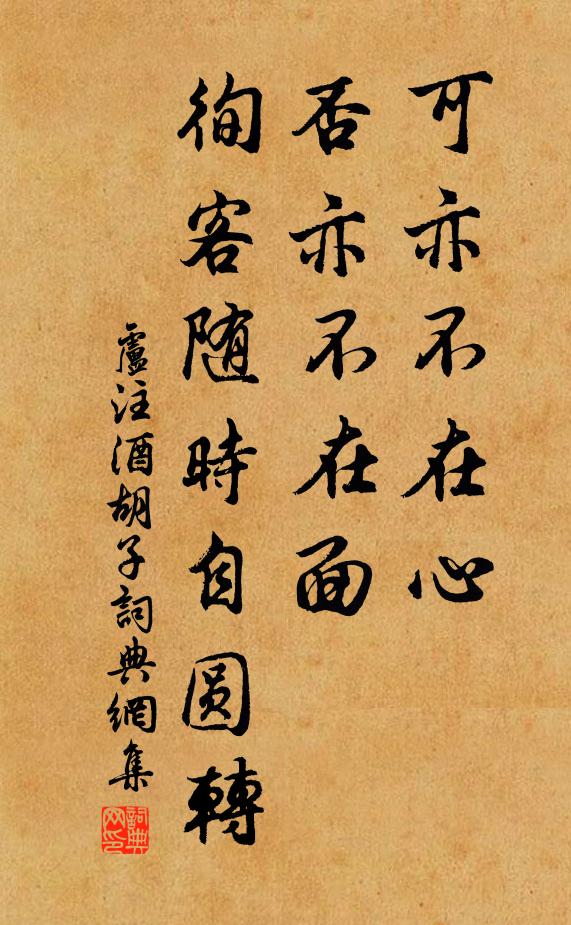 可亦不在心
否亦不在面
徇客随時自圆轉
盧注酒胡子詞典網集
詞典网印